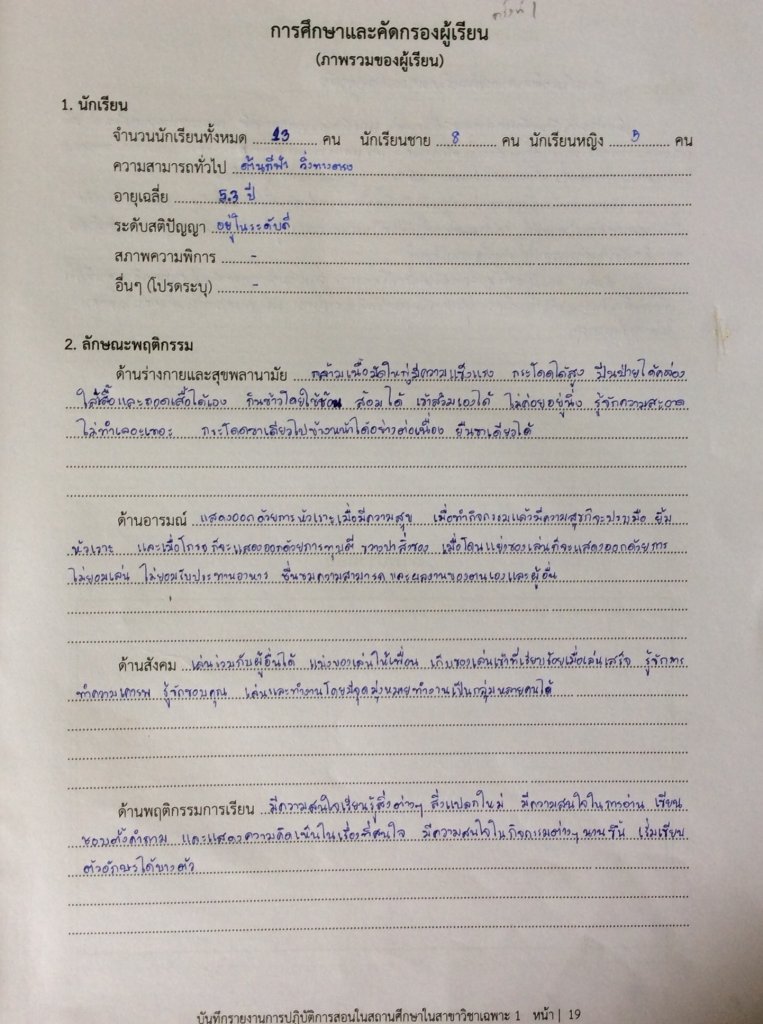 ครั้งที่ 1
การศึกษาและคัดกรองผู้เรียน
(ภาพรวมของผู้เรียน)
1. นักเรียน
จำนวนนักเรียนทั้งหมด 13 คน นักเรียนชาย 8 คน นักเรียนหญิง 5 คน
ความสามารถทั่วไป ด้านกีฬา วิ่งทางตรง
อายุเฉลี่ย 5.3 ปี
ระดับสติปัญญา อยู่ในระดับดี
สภาพความพิการ -
อื่นๆ (โปรดระบุ) -
2. ลักษณะพฤติกรรม
ด้านร่างกายและสุขพลานามัย กล้ามเนื้อมัดใหญ่มีความแข็งแรง กระโดดได้สูง ปีนป่ายได้คล่อง
ใส่เสื้อและถอดเสื้อได้เอง กินข้าวโดยใช้ช้อน ส้อมได้ เข้าส้วมเองได้ ไม่ค่อยอยู่นิ่ง รู้จักความสะอาด
ไม่ทำเลอะเทอะ กระโดดขาเดียวไปข้างหน้าได้อย่างต่อเนื่อง ยืนขาเดียวได้
ด้านอารมณ์ แสดงออกด้วยการหัวเราะเมื่อมีความสุข เมื่อทำกิจกรรมแล้วมีความสุขก็จะปรบมือ ยิ้ม
หัวเราะ และเมื่อโกรธก็จะแสดงออกด้วยการทุบตี ขว้างปาสิ่งของ เมื่อโดนแย่งของเล่นก็จะแสดงออกด้วยการ
ไม่ยอมเล่น ไม่ยอมรับประทานอาหาร ชื่นชมความสามารถ และผลงานของตนเองและผู้อื่น
ด้านสังคม เล่นร่วมกับผู้อื่นได้ แบ่งของเล่นให้เพื่อน เก็บของเล่นเข้าที่เรียบร้อยเมื่อเล่นเสร็จ รู้จักการ
ทำความเคารพ รู้จักขอบคุณ เล่นและทำงานโดยมีจุดมุ่งหมายทำงานเป็นกลุ่มหลายคนได้
ด้านพฤติกรรมการเรียน มีความสนใจเรียนรู้สิ่งต่างๆ สิ่งแปลกใหม่ มีความสนใจในการอ่าน เขียน
ชอบตั้งคำถาม และแสดงความคิดเห็นในเรื่องที่สนใจ มีความสนใจในกิจกรรมต่างๆ นานขึ้น เริ่มเขียน
ตัวอักษรได้บางตัว
บันทึกรายงานการปฏิบัติการสอนในสถานศึกษาในสาขาวิชาเฉพาะ 1 หน้า | 19